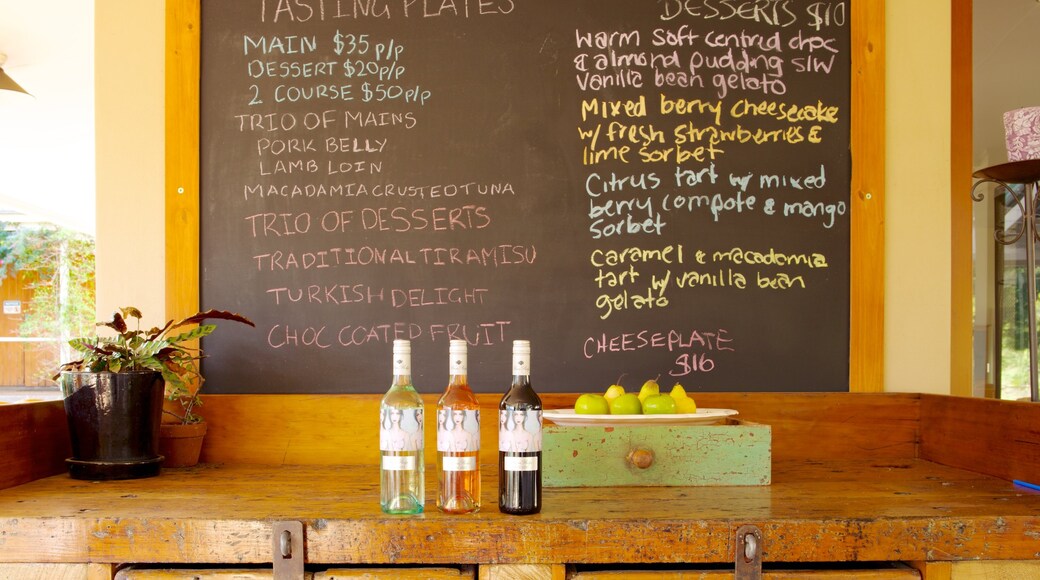 TASTING PLATES
MAIN $35 p/p
DESSERT $20 p/p
2 COURSE $50 p/p
TRIO OF MAINS
PORK BELLY
LAMB LOIN
MACADAMIA CRUSTED TUNA
TRIO OF DESSERTS
TRADITIONAL TIRAMISU
TURKISH DELIGHT
CHOC COATED FRUIT
DESSERTS $10
Warm soft centred choc
& almond pudding s/w
vanilla bean gelato
Mixed berry Cheesecake
w/ fresh strawberries &
lime sorbet
Citrus tart w/ mixed
berry compote & mango
sorbet
Caramel & macadamia
tart w/ vanilla bean
gelato
CHEESEPLATE
$16